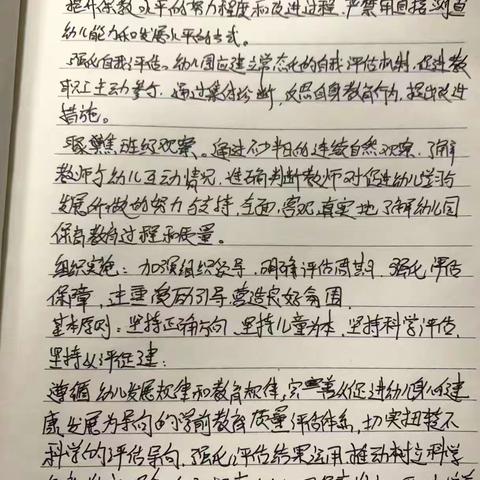 提升保教水平的努力程度和改进过程,严禁用直接测查
幼儿能力和发展水平的方式。
强化自我评估。幼儿园应建立常态化的自我评估机制,促进教
职工主动参与,通过集体诊断,反思自身教育行为,提出改进
措施。
聚焦班级观察。通过不少半日的连续自然观察,了解
教师与幼儿互动情况,准确判断教师对促进幼儿学习与
发展所做的努力与支持,全面、客观、真实地了解幼儿园
保育教育过程和质量。
组织实施:加强组织领导,明确评估周期,强化评估
保障,注重激励引导,营造良好氛围
基本原则:坚持正确方向、坚持儿童为本、坚持科学评估、
坚持以评促建:
遵循幼儿发展规律和教育规律,完善以促进幼儿身心健
康发展为导向的学前教育质量评估体系,切实扭转不
科学的评估导向,强化评估结果运用,推动树立科学